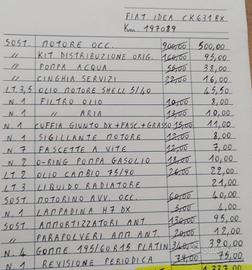 FIAT IDEA CK631BX
Km 197089
SOST. MOTORE OCC. 900,00 500,00
" KIT DISTRIBUZIONE ORIG. 95,00
" POMPA ACQUA 38,00
" CINGHIA SERVIZI 16,00
LT 3,5 OLIO MOTORE SHELL 5/40 45,50
N. 1 FILTRO OLIO 8,00
N. 1 " ARIA 10,00
N. 1 CUFFIA GIUNTO DX + FASC. + GRASSO 11,00
N. 1 SIGILLANTE MOTORE 8,00
N. 7 FASCETTE A VITE 7,00
N. 2 O-RING POMPA GASOLIO 10,00
LT 2 OLIO CAMBIO 75/90 22,00
LT 3 LIQUIDO RADIATORE 21,00
SOST. MOTORINO AVV. OCC. 60,00 40,00
N. 1 LAMPADINA H7 DX 4,00
SOST. AMMORTIZZATORI ANT. 130,00 95,00
" PARAPOLVERI AMM. ANT. 12,00
N. 4 GOMME 195/60R15 PLATIN 340,00 320,00
N. 1 REVISIONE PERIODICA 75,00